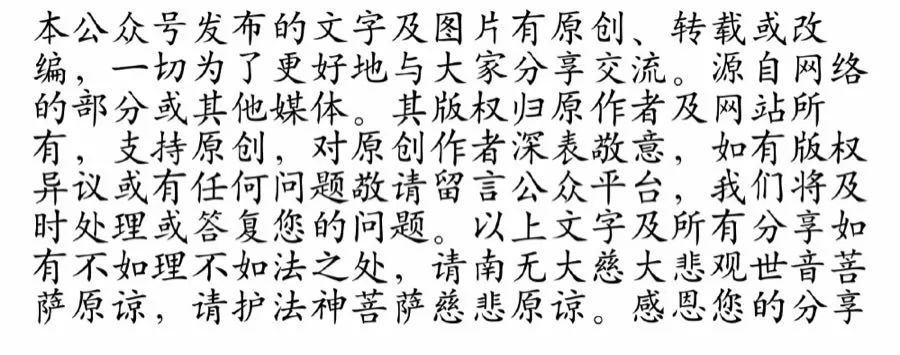 本公众号发布的文字及图片有原创、转载或改
编，一切为了更好地与大家分享交流。源自网络
的部分或其他媒体。其版权归原作者及网站所
有，支持原创，对原创作者深表敬意，如有版权
异议或有任何问题敬请留言公众平台，我们将及
时处理或答复您的问题。以上文字及所有分享如
有不如理不如法之处，请南无大慈大悲观世音菩
萨原谅，请护法神菩萨慈悲原谅。感恩您的分享